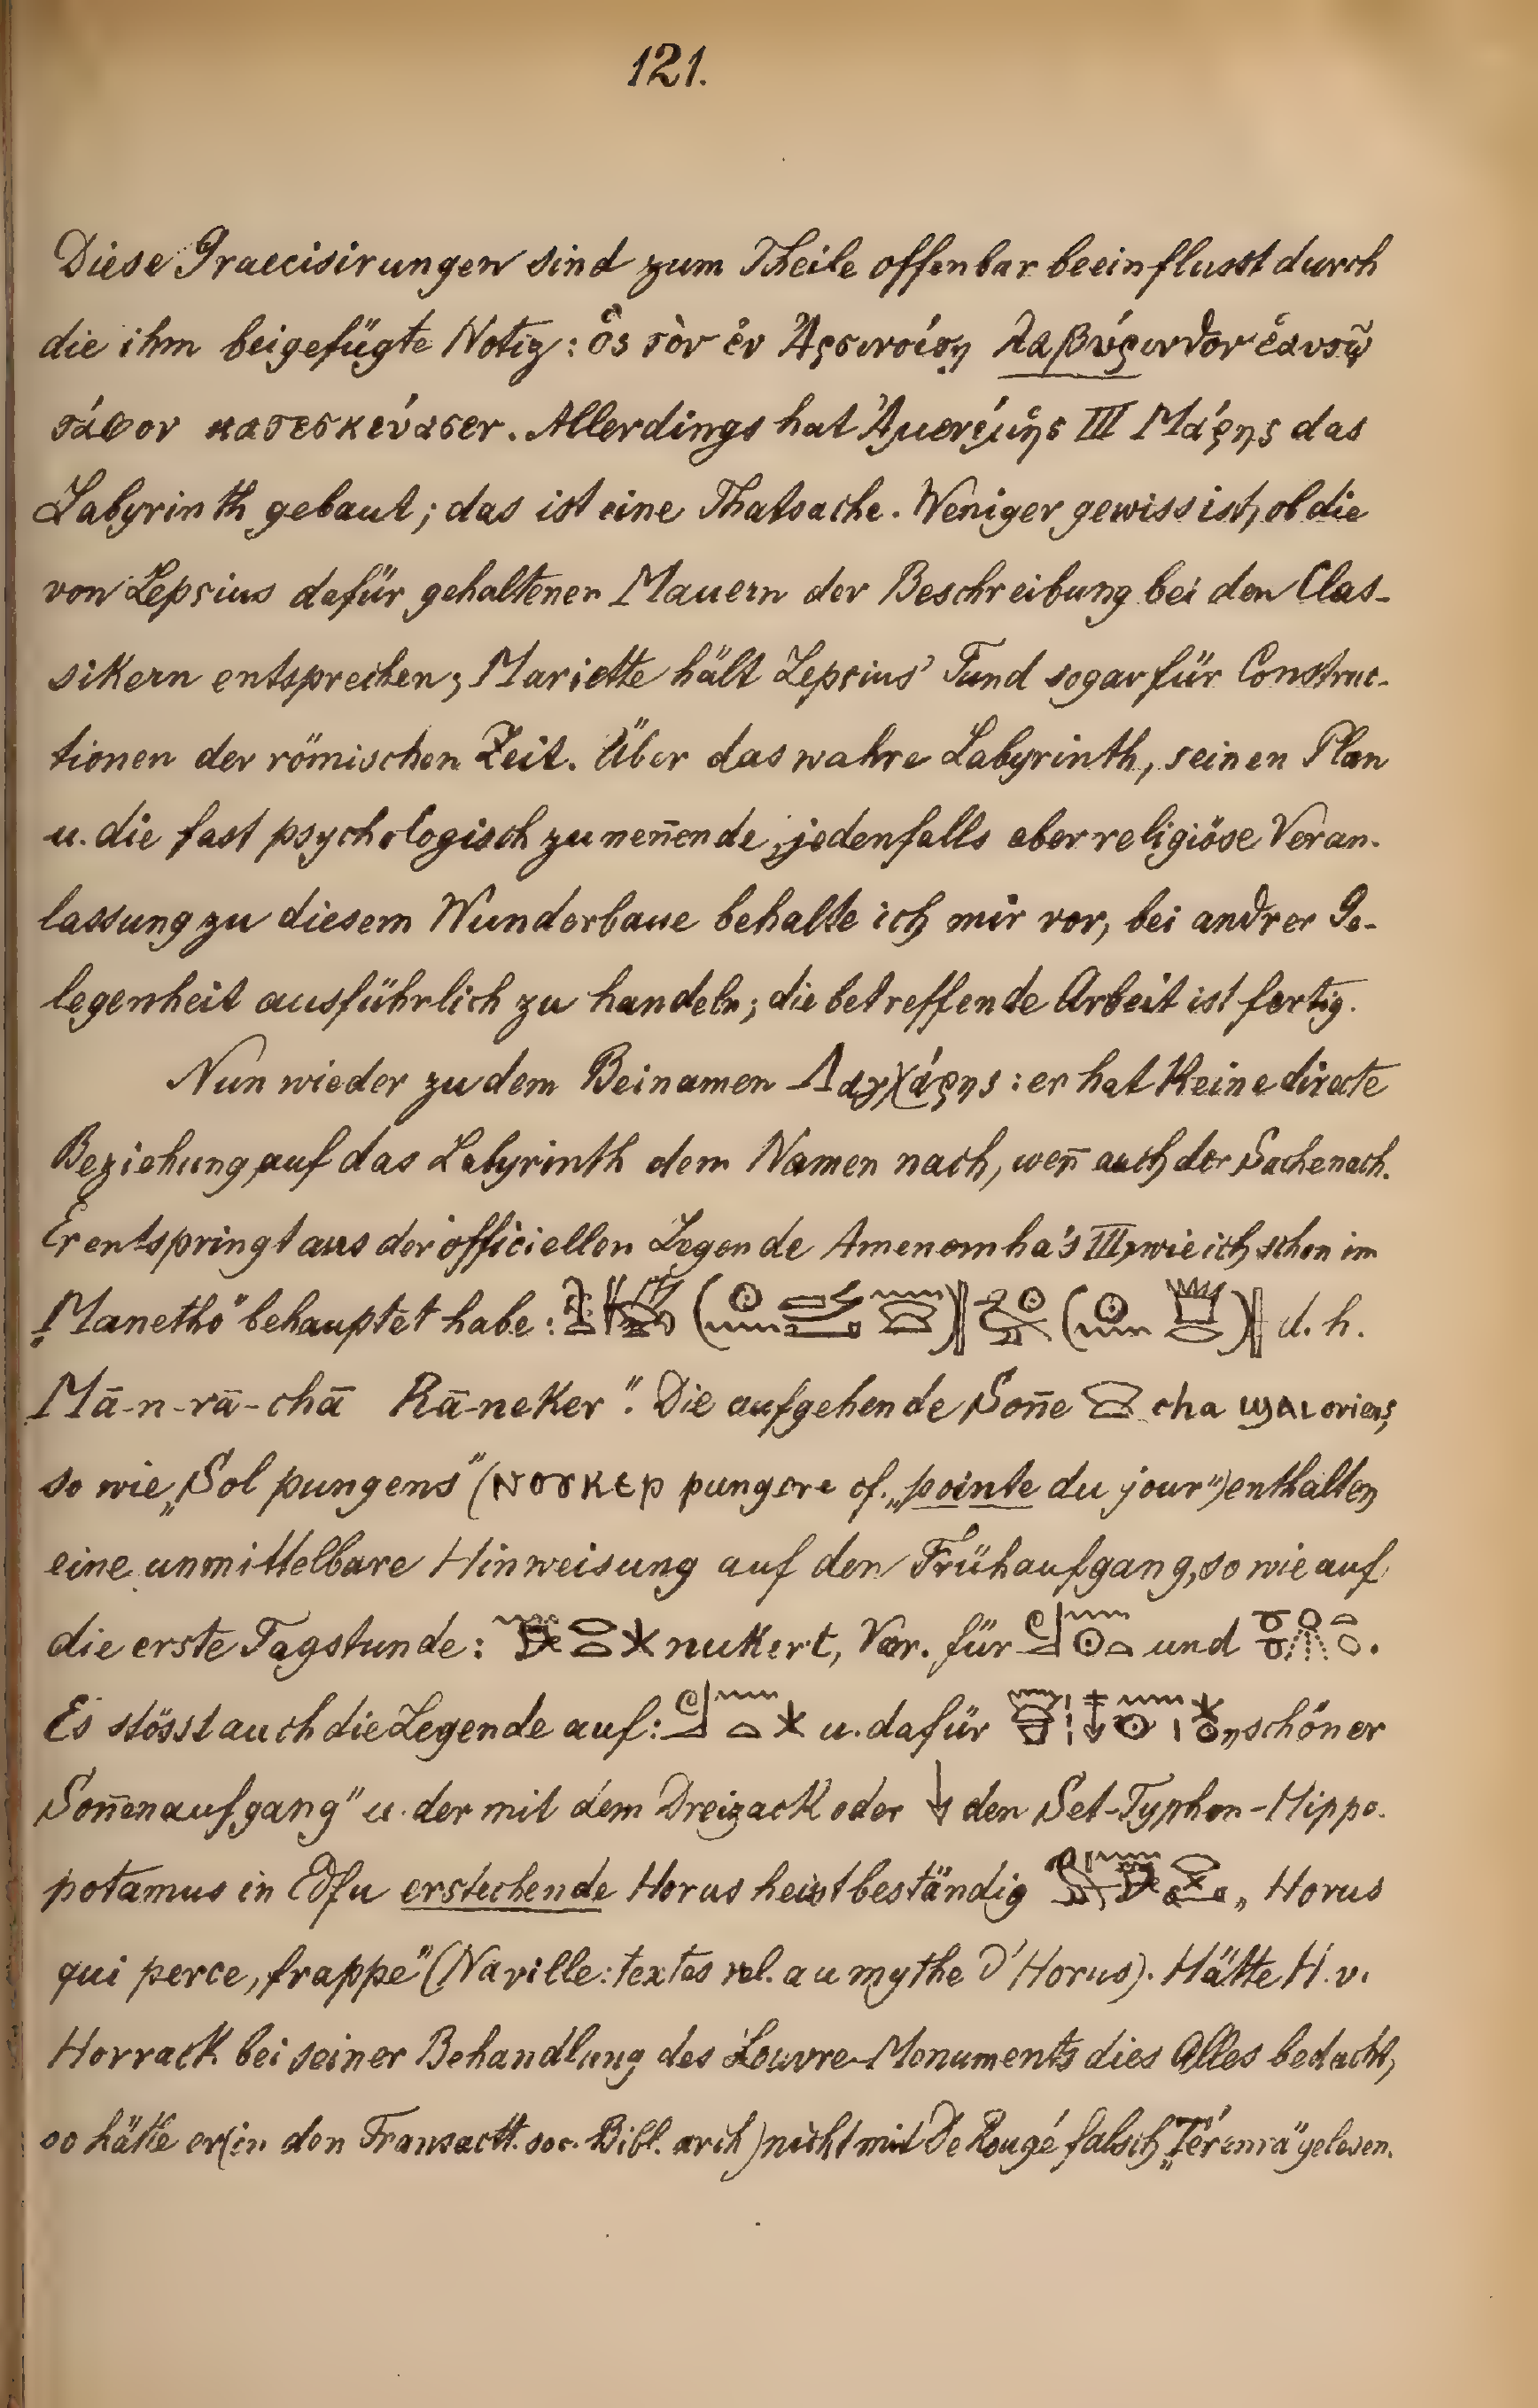 121.
Diese Graecisirungen sind zum Theile offenbar beeinflusst durch
die ihm beigefügte Notiz: ὃς τὸν ἐν Ἀρσινοίτῃ λαβύρινθον ἑαυτῷ
τάφον κατεσκεύασεν. Allerdings hat III Μάρης das
Labyrinth gebaut; das ist eine Thatsache. Weniger gewiss ist, ob die
von Lepsius dafür gehaltenen Mauern der Beschreibung bei den Clas-
sikern entsprechen; Mariette hält Lepsius' Fund sogar für Construc-
tionen der römischen Zeit. Über das wahre Labyrinth, seinen Plan
u. die fast psychologisch zu nen̄ende, jedenfalls aber religiöse Veran-
lassung zu diesem Wunderbaue behalte ich mir vor, bei andrer Ge-
legenheit ausführlich zu handeln; die betreffende Arbeit ist fertig.
Nun wieder zu dem Beinamen Λαχάρης: er hat keine directe
Beziehung auf das Labyrinth dem Namen nach, wen̄ auch der Sache nach.
Er entspringt aus der officiellen Legende Amenemha's III, wie ich schon im
„Manetho" behauptet habe: d. h.
Mā-n-rā-chā Rā-neker". Die aufgehende Son̄e cha ϣⲁⲓ oriens,
so wie „Sol pungens" (ⲛⲟⲩⲕⲉⲣ pungere cf. „pointe du jour") enthalten
eine unmittelbare Hinweisung auf den Frühaufgang, so wie auf
die erste Tagstunde: nukert, Var. für und .
Es stösst auch die Legende auf: u. dafür „schöner
Son̄enaufgang" u. der mit dem Dreizack oder den Set-Typhon-Hippo-
potamus in Edfu erstechende Horus heisst beständig „Horus
qui perce, frappe" (Naville: textes rel. au mythe d'Horus). Hätte H. v.
Horrack bei seiner Behandlung des Louvre-Monuments dies Alles bedacht,
so hätte er (in den Transactt. soc. Bibl. arch) nicht mit De Rougé falsch „Térenra" gelesen.